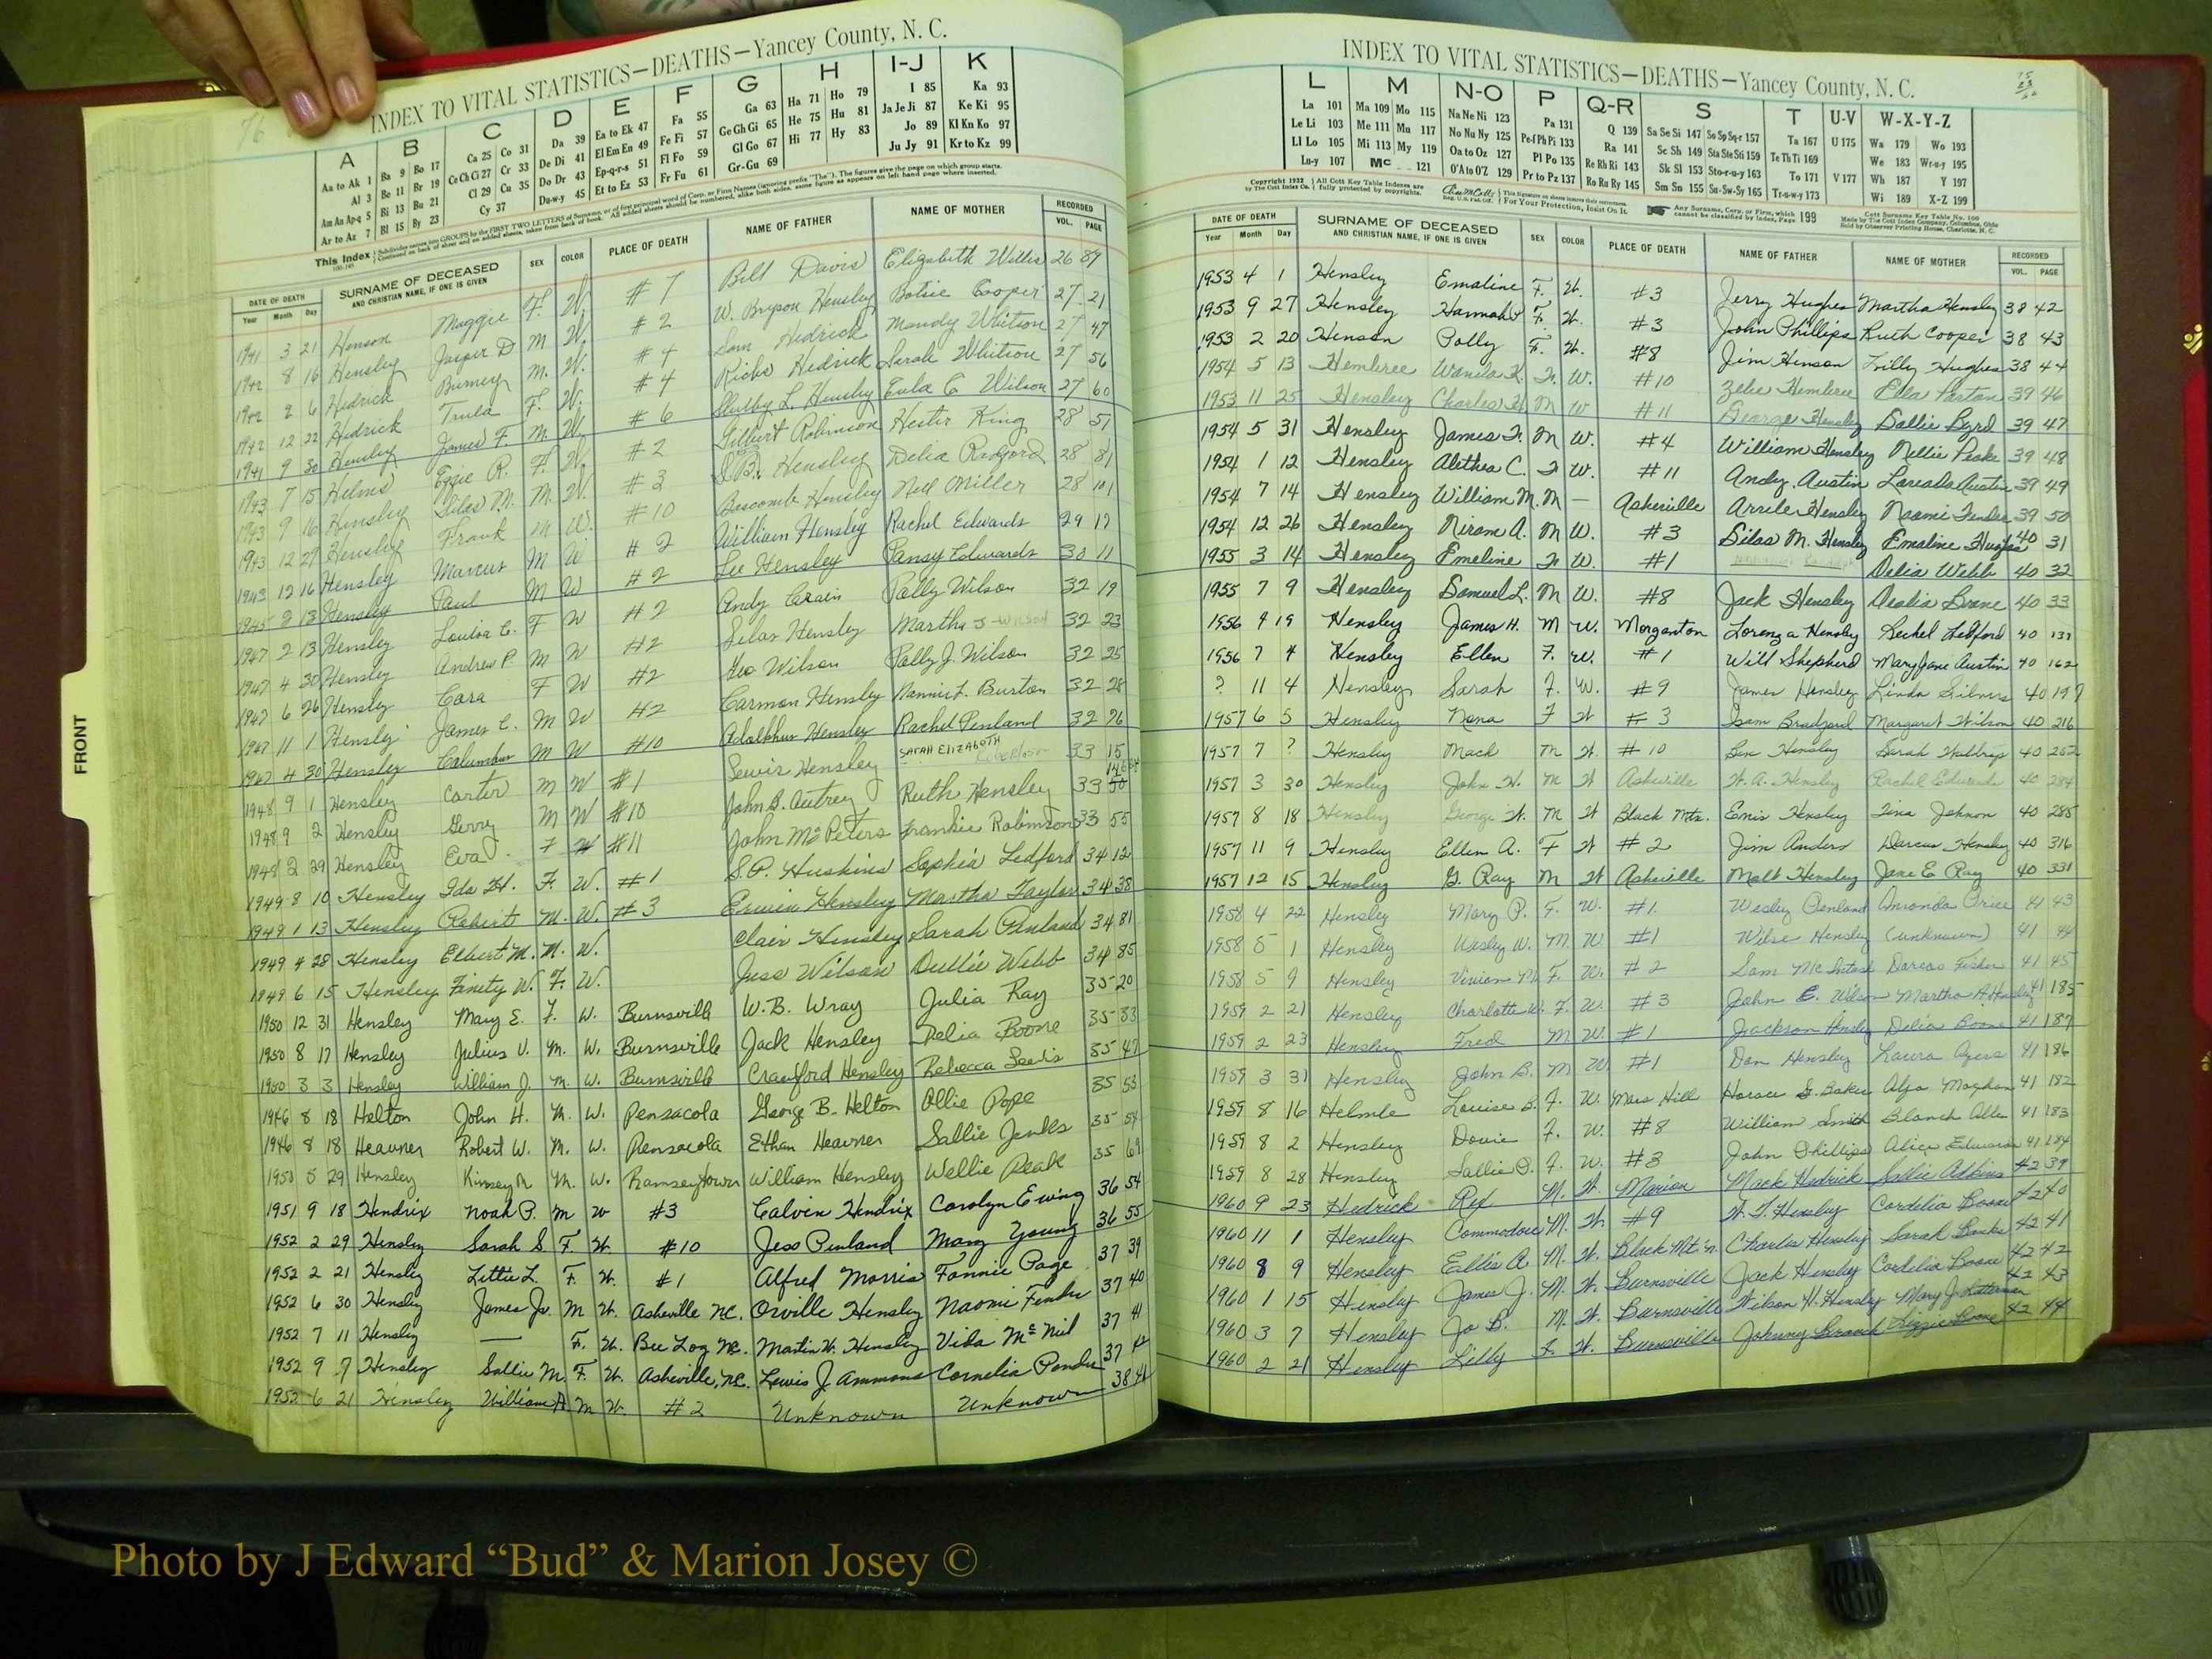 76
INDEX TO VITAL STATISTICS—DEATHS—Yancey County, N. C.
A B C D E F G H I-J K
Aa to Ak 1 Ba 9 Bo 17 Ca 25 Co 31 Da 39 Ea to Ek 47 Fa 55 Ga 63 Ha 71 Ho 79 I 85 Ka 93
Al 3 Be 11 Br 19 Ce Ch Ci 27 Cr 33 De Di 41 El Em En 49 Fe Fi 57 Ge Gh Gi 65 He 75 Hu 81 Ja Je Ji 87 Ke Ki 95
Am An Ap-q 5 Bi 13 Bu 21 Cl 29 Cu 35 Do Dr 43 Ep-q-r-s 51 Fl Fo 59 Gl Go 67 Hi 77 Hy 83 Jo 89 Kl Kn Ko 97
Ar to Az 7 Bl 15 By 23 Cy 37 Du-w-y 45 Et to Ez 53 Fr Fu 61 Gr-Gu 69 Ju Jy 91 Kr to Kz 99
This Index
DATE OF DEATH SURNAME OF DECEASED AND CHRISTIAN NAME, IF ONE IS GIVEN SEX COLOR PLACE OF DEATH NAME OF FATHER NAME OF MOTHER RECORDED
Year Month Day VOL. PAGE
1941 3 21 Henson Maggie F. W. #7 Bill Davis Elizabeth Willis 26 89
1942 8 16 Hensley Jasper D M W. #2 W. Bryson Hensley Botsie Cooper 27 21
1942 2 6 Hedrick Burney M. W. #4 Sam Hedrick Mandy Whitson 27 47
1942 12 22 Hedrick Trula F. W. #4 Hedrick Sarah Whitson 27 56
1941 9 30 Hensley James F. M. W. #6 Shelby L. Hensley Eula C Wilson 27 60
1943 7 15 Helms R. F. W. #2 Gilbert Robinson Hester King 28 51
1943 9 16 Hensley Silas M. M. W. #3 Hensley Delia Radford 28 81
1943 12 29 Hensley Frank M W. #10 Bascomb Hensley Nell Miller 28 101
1943 12 16 Hensley Marcus M W #2 William Hensley Rachel Edwards 29 17
1945 2 13 Hensley Paul M W #2 Lee Hensley Pansy Edwards 30 11
1947 2 13 Hensley Louisa E. F W #2 Andy Crain Polly Wilson 32 19
1947 4 30 Hensley Andrew P. M W #2 Silas Hensley Martha J Wilson 32 23
1947 6 26 Hensley Cora F W #2 Geo Wilson Polly J. Wilson 32 25
1947 11 1 Hensley James C. M W #2 Carmon Hensley Nannie L. Burton 32 28
1947 4 30 Hensley Columbus M W #10 Adolphus Hensley Rachel Penland 32 76
1948 9 1 Hensley Carter M W #1 Lewis Hensley SARAH ELIZABETH 33 15
1948 9 2 Hensley Gerry M W #10 John B. Autrey Ruth Hensley 33
1948 2 29 Hensley Eva F W #11 John McPeters Frankie Robinson 33 55
1949 8 10 Hensley Ida H. F. W. #1 S.P. Huskins Sophia Ledford 34 12
1949 1 13 Hensley Robert M. W. #3 Erwin Hensley Martha Taylor 34 38
1949 4 28 Hensley Elbert M. M. W. Clair Hensley Sarah Penland 34 81
1949 6 15 Hensley Finety W. F. W. Jess Wilson Dullie Webb 34 85
1950 12 31 Hensley Mary E. F. W. Burnsville W.B. Wray Julia Ray 35 20
1950 8 17 Hensley Julius V. M. W. Burnsville Jack Hensley Delia Boone 35 33
1950 3 3 Hensley William J. M. W. Burnsville Crawford Hensley Rebecca Lewis 35 47
1946 8 18 Helton John H. M. W. Pensacola George B. Helton Ollie Pope 35 53
1946 8 18 Heavner Robert W. M. W. Pensacola Ethan Heavner Sallie Jenks 35 54
1950 5 29 Hensley Kinsey M. W. Ramseytown William Hensley Wellie Peak 35 69
1951 9 18 Hendrix Noah P. M W #3 Calvin Hendrix Carolyn Ewing 36 54
1952 2 29 Hensley Sarah S F. W. #10 Jess Penland Mary Young 36 55
1952 2 21 Hensley Lettie L. F. W. #1 Alfred Morris Fannie Page 37 39
1952 6 30 Hensley James Jr. M W. Asheville N.C. Orville Hensley Naomi Fender 37 40
1952 7 11 Hensley — F. W. Bee Log N.C. Martin W. Hensley Vida McNiel 37 41
1952 9 7 Hensley Sallie M. F. W. Asheville, N.C. Lewis J. Ammons Cornelia Ponder 37 42
1952 6 21 Hensley William A. M W. #2 Unknown Unknown 38 41
FRONT
INDEX TO VITAL STATISTICS—DEATHS—Yancey County, N. C.
L M N-O P Q-R S T U-V W-X-Y-Z
La 101 Ma 109 Mo 115 Na Ne Ni 123 Pa 131 Q 139 Sa Se Si 147 So Sp Sq-r 157 Ta 167 U 175 Wa 179 Wo 193
Le Li 103 Me 111 Mu 117 No Nu Ny 125 Pe-f Ph Pi 133 Ra 141 Sc Sh 149 Sta Ste Sti 159 Te Th Ti 169 We 183 Wr-u-y 195
Ll Lo 105 Mi 113 My 119 Oa to Oz 127 Pl Po 135 Re Rh Ri 143 Sk Sl 153 Sto-r-u-y 163 To 171 V 177 Wh 187 Y 197
Lu-y 107 Mc 121 O'A to O'Z 129 Pr to Pz 137 Ro Ru Ry 145 Sm Sn 155 Su-Sw-Sy 165 Tr-u-w-y 173 Wi 189 X-Z 199
Copyright 1932 All Cott Key Table Indexes are fully protected by copyrights. For Your Protection, Insist On It. Any Surname, Corp. or Firm, which cannot be classified by Index, Page 199
DATE OF DEATH SURNAME OF DECEASED AND CHRISTIAN NAME, IF ONE IS GIVEN SEX COLOR PLACE OF DEATH NAME OF FATHER NAME OF MOTHER RECORDED
Year Month Day VOL. PAGE
1953 4 1 Hensley Emaline F. W. #3 Jerry Hughes Martha Hensley 38 42
1953 9 27 Hensley Hannah F. W. #3 John Phillips Ruth Cooper 38 43
1953 2 20 Henson Polly F. W. #8 Jim Henson Lilly Hughes 38 44
1954 5 13 Hembree Wanda K. F. W. #10 Zelie Hembree Ella 39 46
1953 11 25 Hensley Charles H M W #11 George Hensley Sallie Byrd 39 47
1954 5 31 Hensley James F. M W. #4 William Hensley Nellie Peake 39 48
1954 1 12 Hensley Alethea C. F W. #11 Andy Austin Austin 39 49
1954 7 14 Hensley William M. M — Asheville Hensley Naomi Fender 39 50
1954 12 26 Hensley Niram A. M W. #3 Silas M. Hensley Emaline Hughes 40 31
1955 3 14 Hensley Emeline F W. #1 Delia Webb 40 32
1955 7 9 Hensley Samuel L. M W. #8 Jack Hensley Boone 40 33
1956 4 19 Hensley James H. M W. Morganton Lorenza Hensley Rechel Ledford 40 131
1956 7 4 Hensley Ellen F. W. #1 Will Shepherd Mary Jane Austin 40 162
? 11 4 Hensley Sarah F. W. #9 James Hensley Linda Silvers 40 197
1957 6 5 Hensley Nona F W #3 Isam Bradford Margaret Wilson 40 216
1957 7 ? Hensley Mack M W. #10 Hensley Sarah 40 252
1957 3 30 Hensley John W. M W Asheville W. A. Hensley Rachel Edwards 40 284
1957 8 18 Hensley George W. M W Black Mtn. Hensley Tina Johnson 40 285
1957 11 9 Hensley Ellen A. F W #2 Jim Anders Darcus Hensley 40 316
1957 12 15 Hensley G. Ray M W Asheville Molt Hensley Jane E Ray 40 331
1958 4 22 Hensley Mary P. F. W. #1 Wesley Penland Amanda Price 41 43
1958 5 1 Hensley Wesley W. M. W. #1 Wilse Hensley (unknown) 41 44
1958 5 9 Hensley Vivian M. F. W. #2 Sam McIntosh Darcas Fisher 41 45
1959 2 21 Hensley Charlotte W. F. W. #3 John E. Wilson Martha A Hensley 41 185
1959 2 23 Hensley Fred M W. #1 Jackson Hensley Delia Boone 41 187
1959 3 31 Hensley John B. M W #1 Dan Hensley Laura Ayers 41 186
1959 8 16 Helmle Louise B. F. W. Mars Hill Horace S. Baker 41 182
1959 8 2 Hensley Dovie F. W. #8 William Smith Blanch Allen 41 183
1959 8 28 Hensley Sallie P. F. W. #3 John Phillips Alice Edwards 41 184
1960 9 23 Hedrick Rex M. W. Marion Mack Hedrick Sallie Atkins 42 39
1960 11 1 Hensley Commodore M. W. #9 W. T. Hensley Cordelia Boone 42 40
1960 8 9 Hensley Ellis A M. W. Black Mt'n. Charles Hensley Sarah Banks 42 41
1960 1 15 Hensley James J. M. W. Burnsville Jack Hensley Cordelia Boone 42 42
1960 3 7 Hensley Jo B. M. W. Burnsville Wilson H. Hensley Mary J. 42 43
1960 2 21 Hensley Lilly F. W. Burnsville Johnny Branch Lizzie Boone 42 44
Photo by J Edward “Bud” & Marion Josey ©